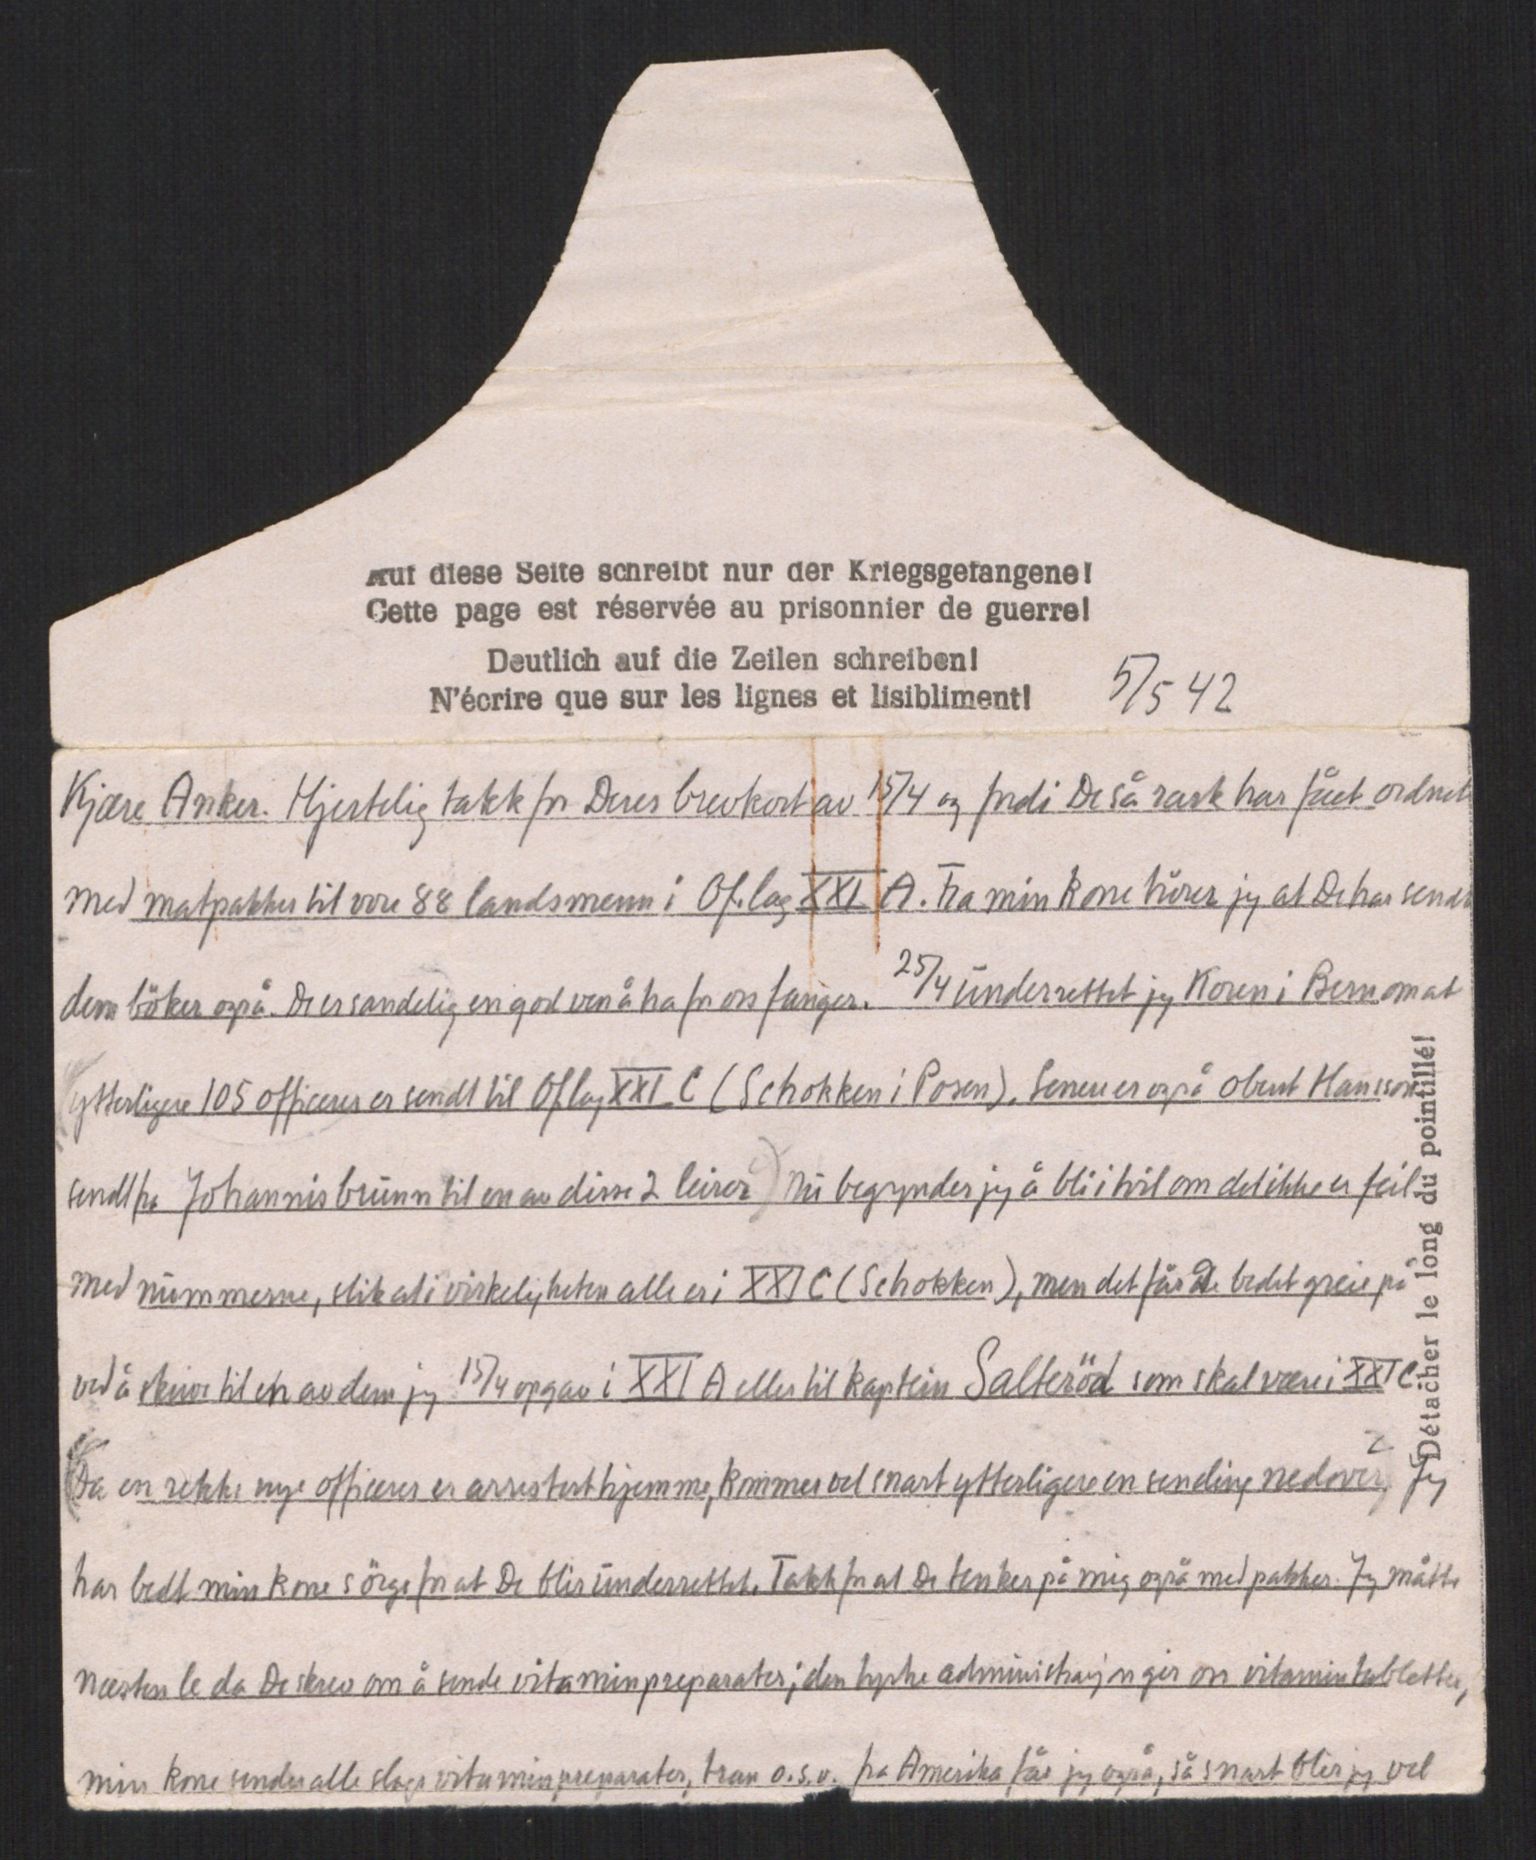 Auf diese Seite schreibt nur der Kriegsgefangene!
Cette page est réservée au prisonnier de guerre!
Deutlich auf die Zeilen schreiben!
N'écrire que sur les lignes et lisibliment!
5/5 42
Kjære Anker. Hjertelig takk for Deres brevkort av 15/4 og fordi De så rask har fået ordnet
med matpakker til vore 88 landsmenn i Oflag XXI A. Fra min kone hörer jeg at De har sendt
dem böker også. De er sandelig en god ven å ha for oss fanger. 25/4 underrettet jeg Koren i Bern om at
ytterligere 105 officerer er sendt til Oflag XXI C (Schokken i Posen). Senere er også oberst Hansson
sendt fra Johannisbrunn til en av disse 2 leirer) Nu begynder jeg å bli i tvil om det ikke er feil
med nummerne, slik at i virkeligheten alle er i XXI C (Schokken), men det får De bedst greie på
ved å skrive til en av dem jeg 15/4 opgav i XXI A eller til kaptein Salteröd som skal være i XXI C.
(Da en rekke nye officerer er arrestert hjemme, kommer vel snart ytterligere en sending nedover) Jeg
har bedt min kone sörge for at De blir underrettet. Takk for at De tenker på mig også med pakker. Jeg måtte
næsten le da De skrev om å sende vitaminpreparater; den tyske administrasjon gir oss vitamintabletter,
min kone sender alle slags vitaminpreparater, tran o.s.v. fra Amerika får jeg også, så snart blir jeg vel
Détacher le long du pointillé!